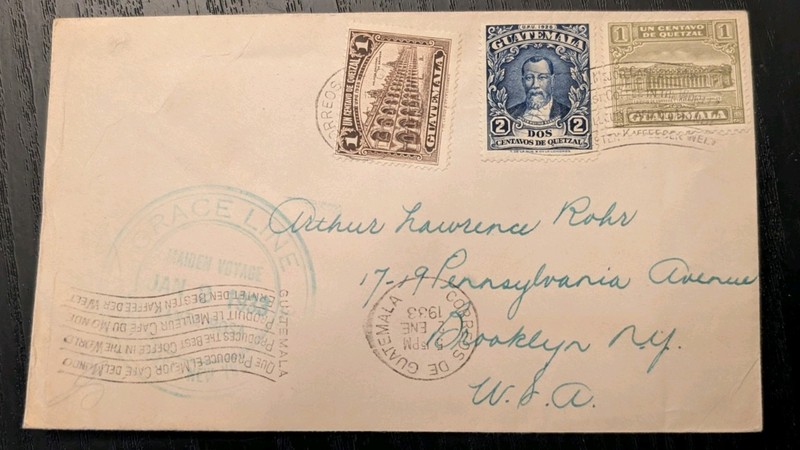 1 UN CENTAVO DE QUETZAL 1
GUATEMALA
GUATEMALA
2 DOS 2
CENTAVOS DE QUETZAL
1 UN CENTAVO DE QUETZAL 1
GUATEMALA
CORREOS
Arthur Lawrence Rohr
17-19 Pennsylvania Avenue
Brooklyn N.Y.
U.S.A.
GRACE LINE
MAIDEN VOYAGE
JAN
CORREOS DE GUATEMALA
PM
ENE
1933
GUATEMALA
QUE PRODUCE EL MEJOR CAFE DEL MUNDO
PRODUCES THE BEST COFFEE IN THE WORLD
PRODUIT LE MEILLEUR CAFÉ DU MONDE
ERNTET DEN BESTEN KAFFEE DER WELT